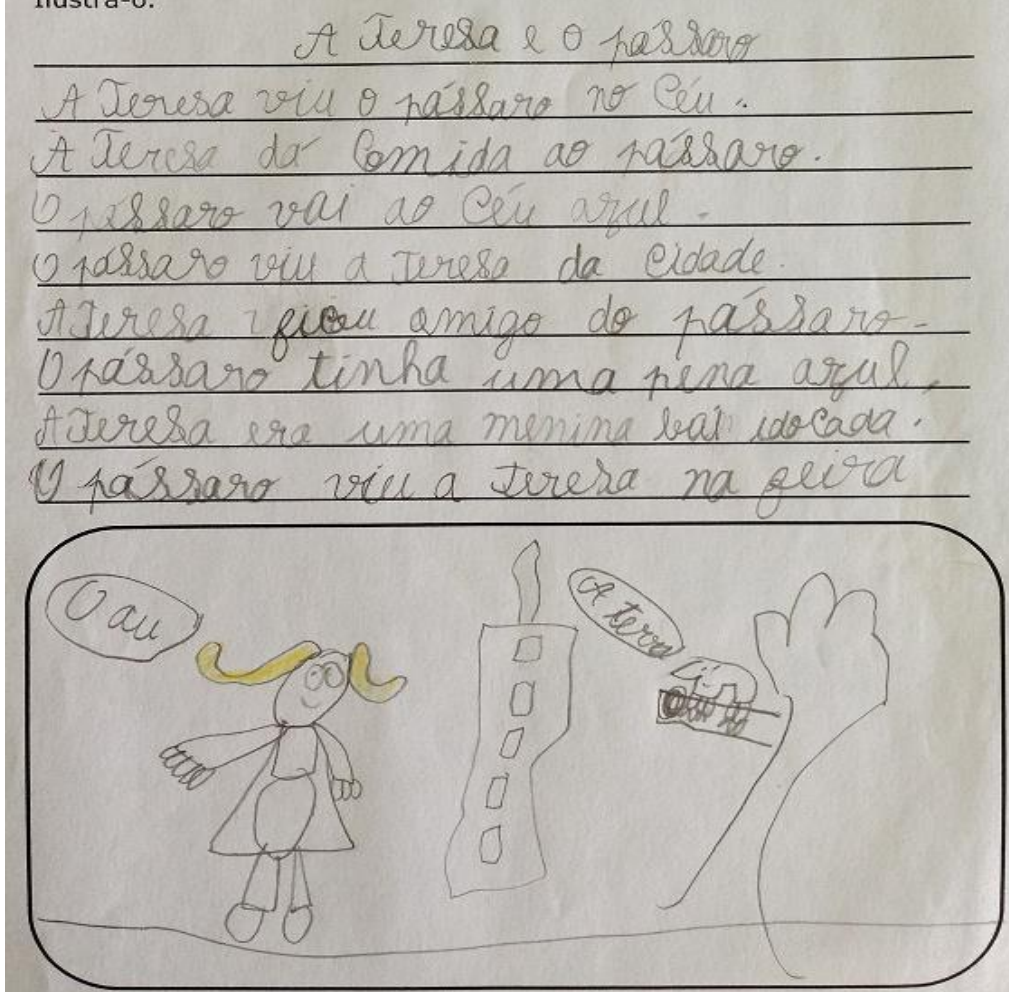 Ilustra-o.
A Teresa e o pássaro
A Teresa viu o pássaro no Céu.
A Teresa dá Comida ao pássaro.
O pássaro vai ao Céu azul.
O pássaro viu a Teresa da Cidade.
A Teresa ficou amigo do pássaro.
O pássaro tinha uma pena azul,
A Teresa era uma menina bai idocada.
O pássaro viu a Teresa na feira
O au
A terra